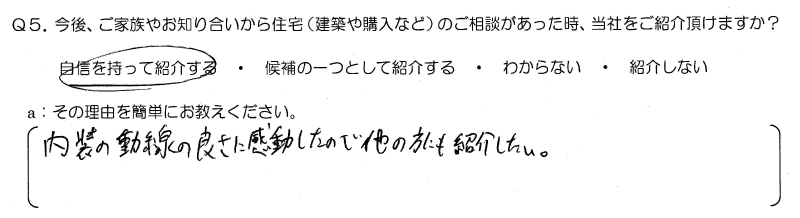 Q5．今後、ご家族やお知り合いから住宅（建築や購入など）のご相談があった時、当社をご紹介頂けますか？
自信を持って紹介する ・ 候補の一つとして紹介する ・ わからない ・ 紹介しない
a：その理由を簡単にお教えください。
内装の動線の良さに感動したので他の方にも紹介したい。